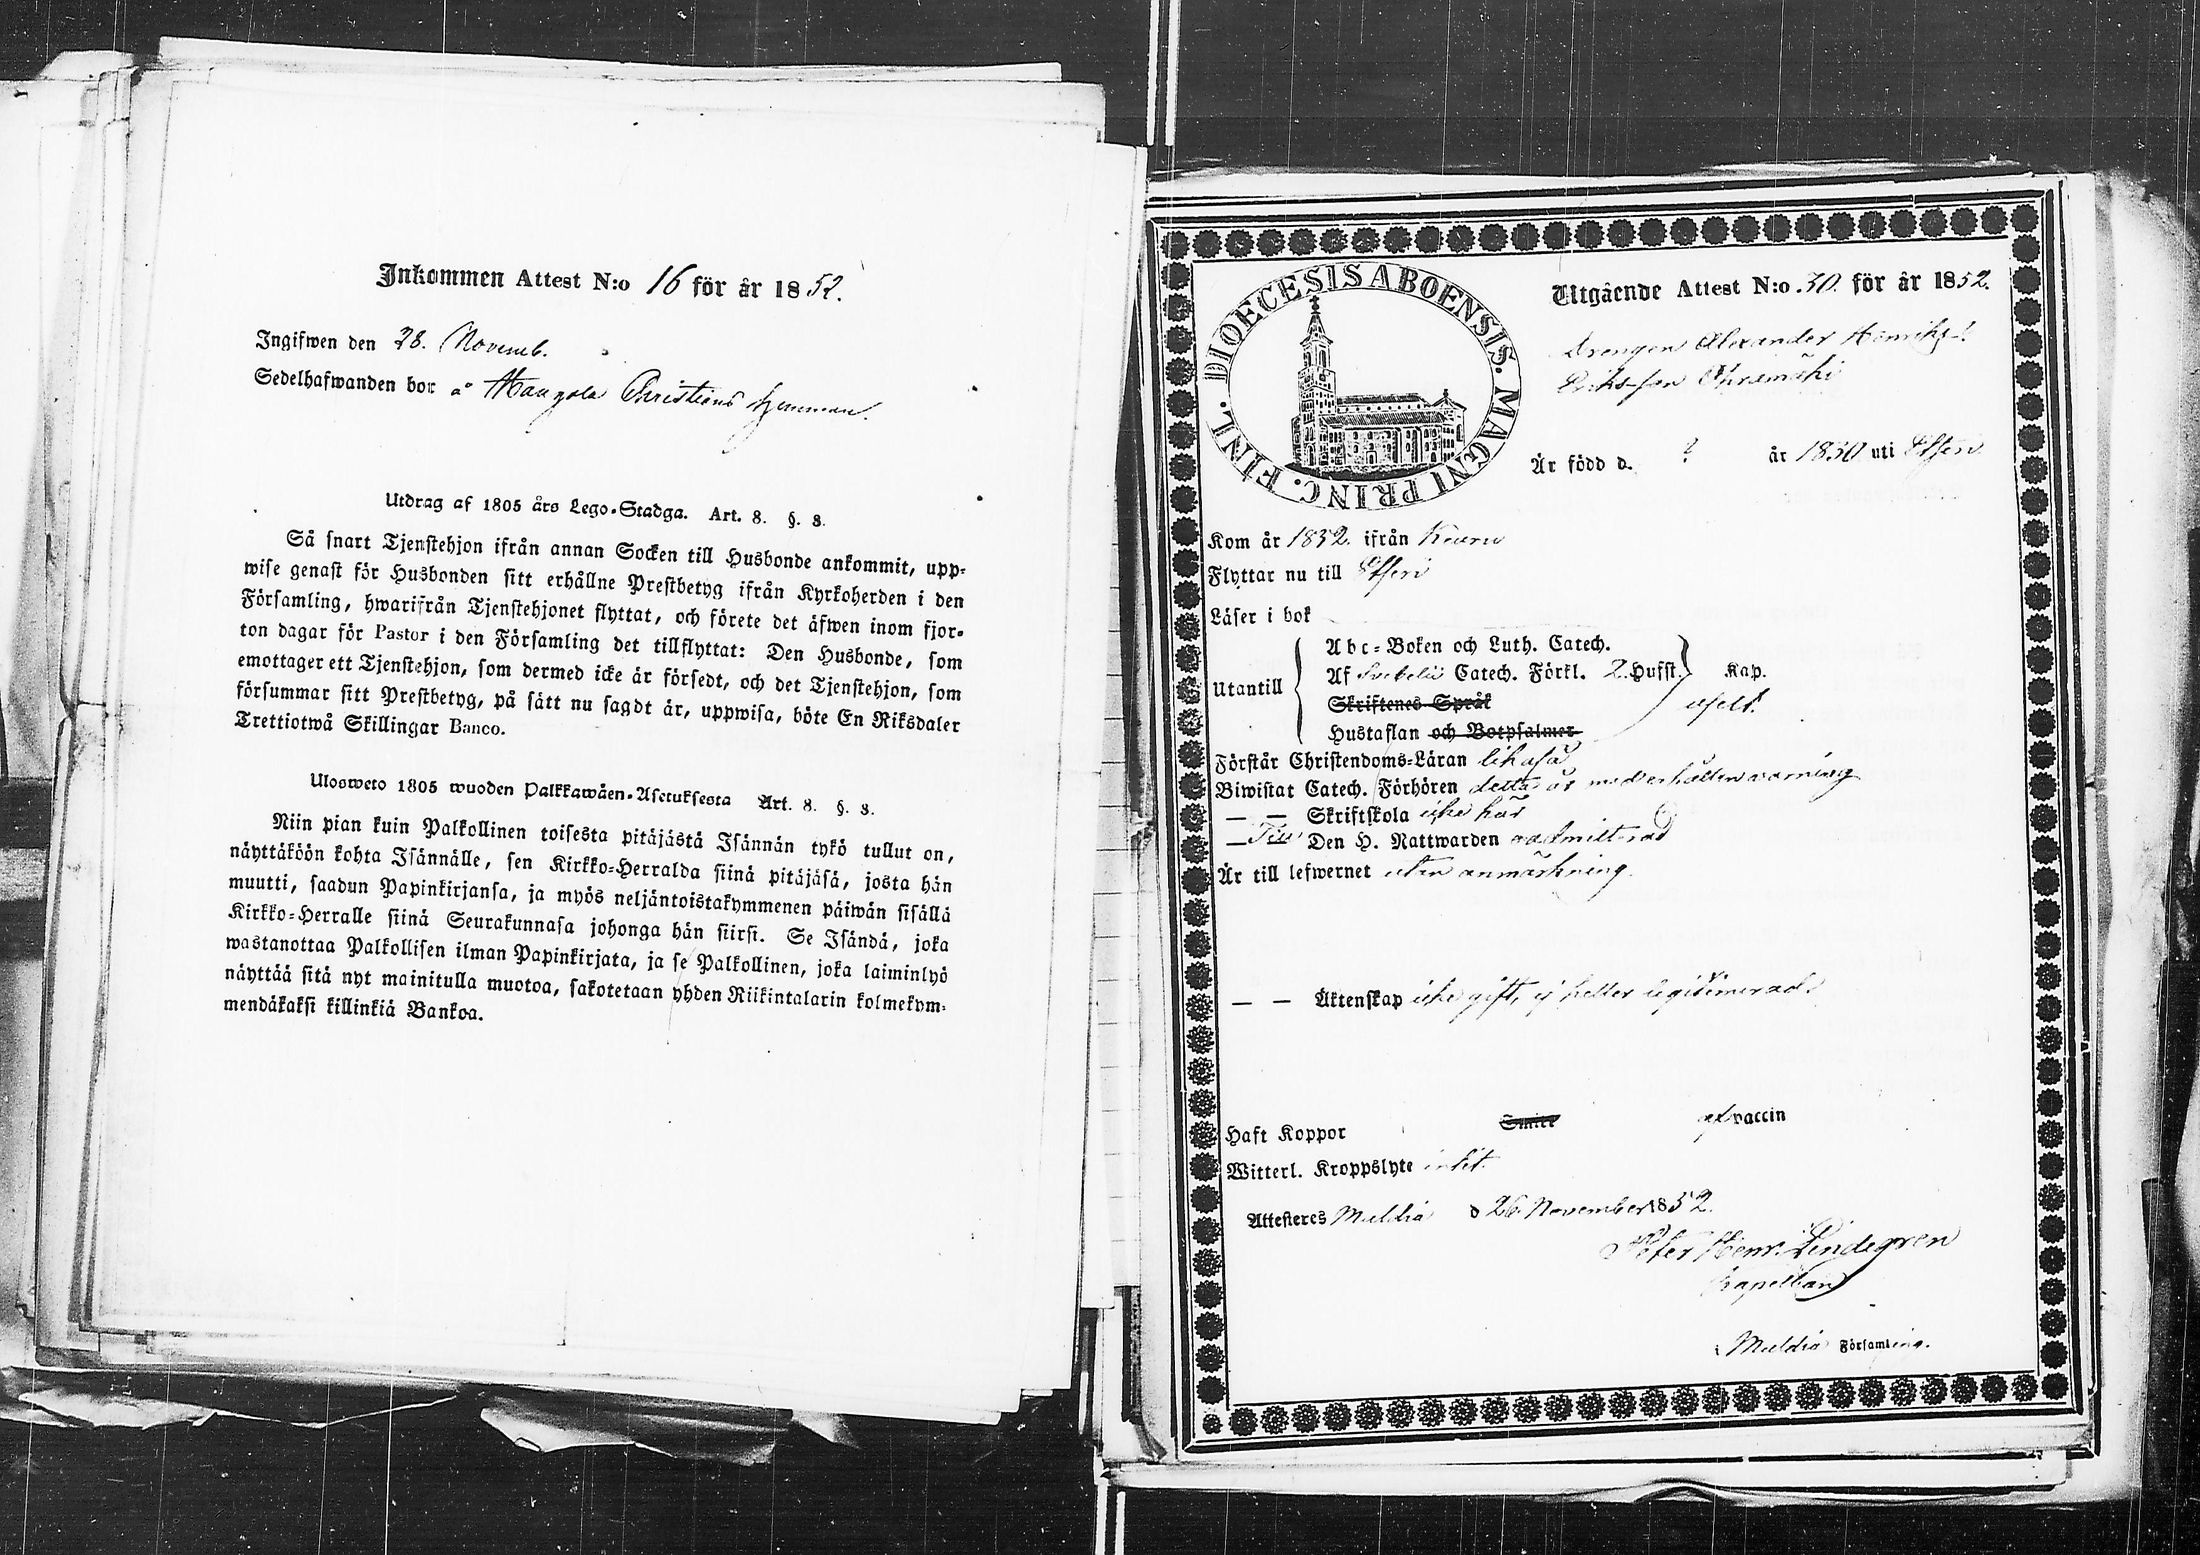 Inkommen Attest N:o 16 för år 1852.
Ingifwen den 28. Novemb.
Sedelhafwanden bor å Christians hemman.
Utdrag af 1805 års Lego-Stadga. Art. 8. §. 3.
Så snart Tjenstehjon ifrån annan Socken till Husbonde ankommit, upp-
wise genast för Husbonden sitt erhållne Prestbetyg ifrån Kyrkoherden i den
Församling, hwarifrån Tjenstehjonet flyttat, och förete det äfwen inom fjor-
ton dagar för Pastor i den Församling det tillflyttat: Den Husbonde, som
emottager ett Tjenstehjon, som dermed icke är försedt, och det Tjenstehjon, som
försummar sitt Prestbetyg, på sätt nu sagdt är, uppwisa, böte En Riksdaler
Trettiotwå Skillingar Banco.
Ulosweto 1805 wuoden Palkkawäen-Asetuksesta Art. 8. §. 3.
Niin pian kuin Palkollinen toisesta pitäjästä Isännän tykö tullut on,
näyttäköön kohta Isännälle, sen Kirkko-Herralda siinä pitäjäsä, josta hän
muutti, saadun Papinkirjansa, ja myös neljäntoistakymmenen päiwän sisällä
Kirkko-Herralle siinä Seurakunnasa johonga hän siirsi. Se Isändä, joka
wastanottaa Palkollisen ilman Papinkirjata, ja se Palkollinen, joka laiminlyö
näyttää sitä nyt mainitulla muotoa, sakotetaan yhden Riikintalarin kolmekym-
mendäkaksi killinkiä Bankoa.
DIOECESIS ABOENSIS. MAGNI PRINC. FINL.
Utgående Attest N:o 30. för år 1852.
Drengen Alexander Henriks-
Eriks-son
Är född d. ? år 1830 uti Etseri
Kom år 1852 ifrån Keuru
Flyttar nu till Etseri
Läser i bok
Abc-Boken och Luth. Catech.
Af Svebelii Catech. Förkl. 2. Hufst. Kap.
Utantill
Skriftenes Språk uselt.
Hustaflan och Botpsalmer
Förstår Christendoms-Läran likaså
Biwistat Catech. Förhören detta år med erhållen varning
— — Skriftskola icke här
— Till Den H. Nattwarden admitterad
Är till lefwernet utan anmärkning.
— — Äktenskap icke gift, ej heller legitimerad.
Haft Koppor Smitt af vaccin
Witterl. Kroppslyte intet.
Attesteres Multia d 26 November 1852.
Peter Henr. Lindegren
Capellan
i Multia Församling.